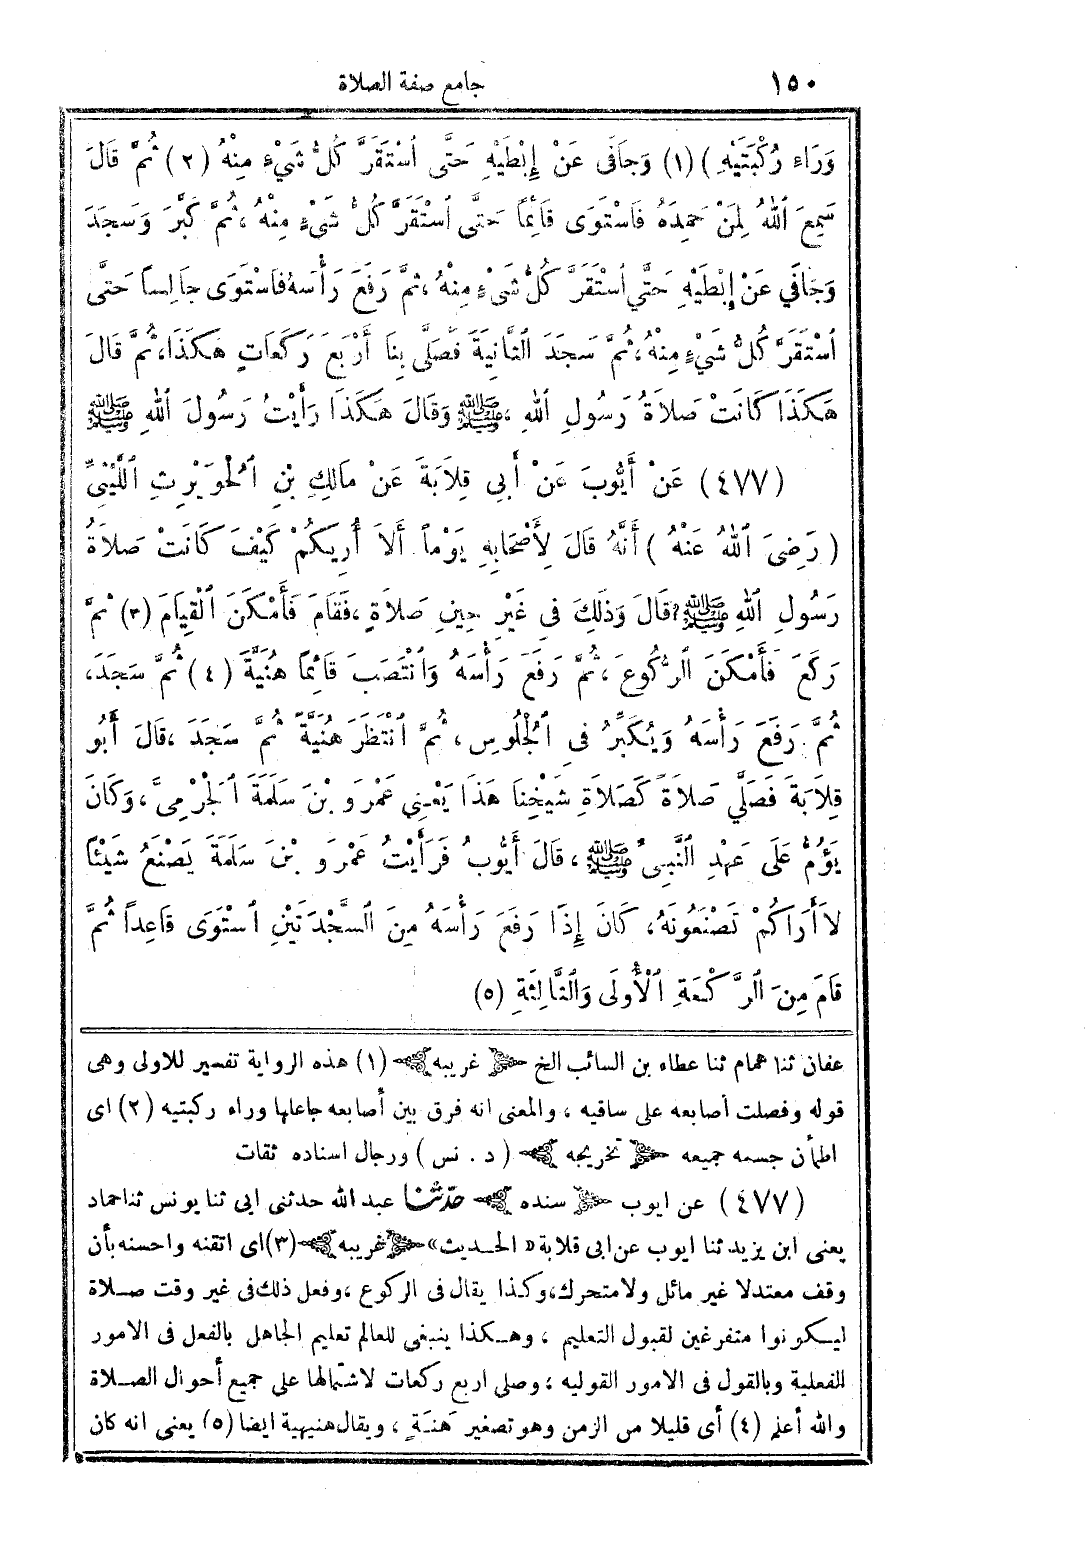 ١٥٠ جامع صفة الصلاة
وَرَاءَ رُكْبَتَيْهِ ) (١) وَجَافَى عَنْ إِبْطَيْهِ حَتَّى اسْتَقَرَّ كُلُّ شَيْءٍ مِنْهُ (٢) ثُمَّ قَالَ
سَمِعَ اللهُ لِمَنْ حَمِدَهُ فَاسْتَوَى قَائِمًا حَتَّى اسْتَقَرَّ كُلُّ شَيْءٍ مِنْهُ، ثُمَّ كَبَّرَ وَسَجَدَ
وَجَافَي عَنْ إِبْطَيْهِ حَتَّي اسْتَقَرَّ كُلُّ شَيْءٍ مِنْهُ، ثُمَّ رَفَعَ رَأْسَهُ فَاسْتَوَى جَالِسًا حَتَّى
اسْتَقَرَّ كُلُّ شَيْءٍ مِنْهُ، ثُمَّ سَجَدَ الثَّانِيَةَ فَصَلَّى بِنَا أَرْبَعَ رَكَعَاتٍ هَكَذَا، ثُمَّ قَالَ
هَكَذَا كَانَتْ صَلَاةُ رَسُولِ اللهِ ، ﷺ وَقَالَ هَكَذَا رَأَيْتُ رَسُولَ اللهِ ﷺ
(٤٧٧) عَنْ أَيُّوبَ عَنْ أَبِي قِلَابَةَ عَنْ مَالِكِ بْنِ الْحُوَيْرِثِ اللَّيْثِيِّ
( رَضِيَ اللهُ عَنْهُ ) أَنَّهُ قَالَ لِأَصْحَابِهِ يَوْمًا أَلَا أُرِيكُمْ كَيْفَ كَانَتْ صَلَاةُ
رَسُولِ اللهِ ﷺ؟ قَالَ وَذَلِكَ فِي غَيْرِ حِينِ صَلَاةٍ، فَقَامَ فَأَمْكَنَ الْقِيَامَ (٣) ثُمَّ
رَكَعَ فَأَمْكَنَ الرُّكُوعَ ، ثُمَّ رَفَعَ رَأْسَهُ وَانْتَصَبَ قَائِمًا هُنَيَّةً (٤) ثُمَّ سَجَدَ،
ثُمَّ رَفَعَ رَأْسَهُ وَيُكَبِّرُ فِي الْجُلُوسِ، ثُمَّ انْتَظَرَ هُنَيَّةً ثُمَّ سَجَدَ ، قَالَ أَبُو
قِلَابَةَ فَصَلَّي صَلَاةً كَصَلَاةِ شَيْخِنَا هَذَا يَعْنِي عَمْرَو بْنَ سَلَمَةَ الْجَرْمِيَّ، وَكَانَ
يَؤُمُّ عَلَى عَهْدِ النَّبِيِّ ﷺ ، قَالَ أَيُّوبُ فَرَأَيْتُ عَمْرَو بْنَ سَلَمَةَ يَصْنَعُ شَيْئًا
لاَ أَرَاكُمْ تَصْنَعُونَهُ، كَانَ إِذَا رَفَعَ رَأْسَهُ مِنَ السَّجْدَتَيْنِ اسْتَوَى قَاعِدًا ثُمَّ
قَامَ مِنَ الرَّكْعَةِ الْأُولَى وَالثَّالِثَةِ (٥)
عفان ثنا همام ثنا عطاء بن السائب الخ غريبه (١) هذه الرواية تفسير للاولى وهى
قوله وفصلت أصابعه على ساقيه ، والمعنى انه فرق بين أصابعه جاعلها وراء ركبتيه (٢) اى
اطمأن جسمه جميعه تخريجه ( د . نس ) ورجال اسناده ثقات
(٤٧٧) عن ايوب سنده حدثنا عبد الله حدثنى ابى ثنا يونس ثنا حماد
يعنى ابن يزيد ثنا ايوب عن ابى قلابة « الحديث» غريبه (٣) اى اتقنه واحسنه بأن
وقف معتدلا غير مائل ولا متحرك، وكذا يقال فى الركوع ، وفعل ذلك فى غير وقت صلاة
ليكونوا متفرغين لقبول التعليم ، وهكذا ينبغى للعالم تعليم الجاهل بالفعل فى الامور
الفعلية وبالقول فى الامور القوليه ؛ وصلى اربع ركعات لاشتمالها على جميع أحوال الصلاة
والله أعلم (٤) أى قليلا من الزمن وهو تصغير هَنَةٍ ، ويقال هنيهة ايضا (٥) يعنى انه كان